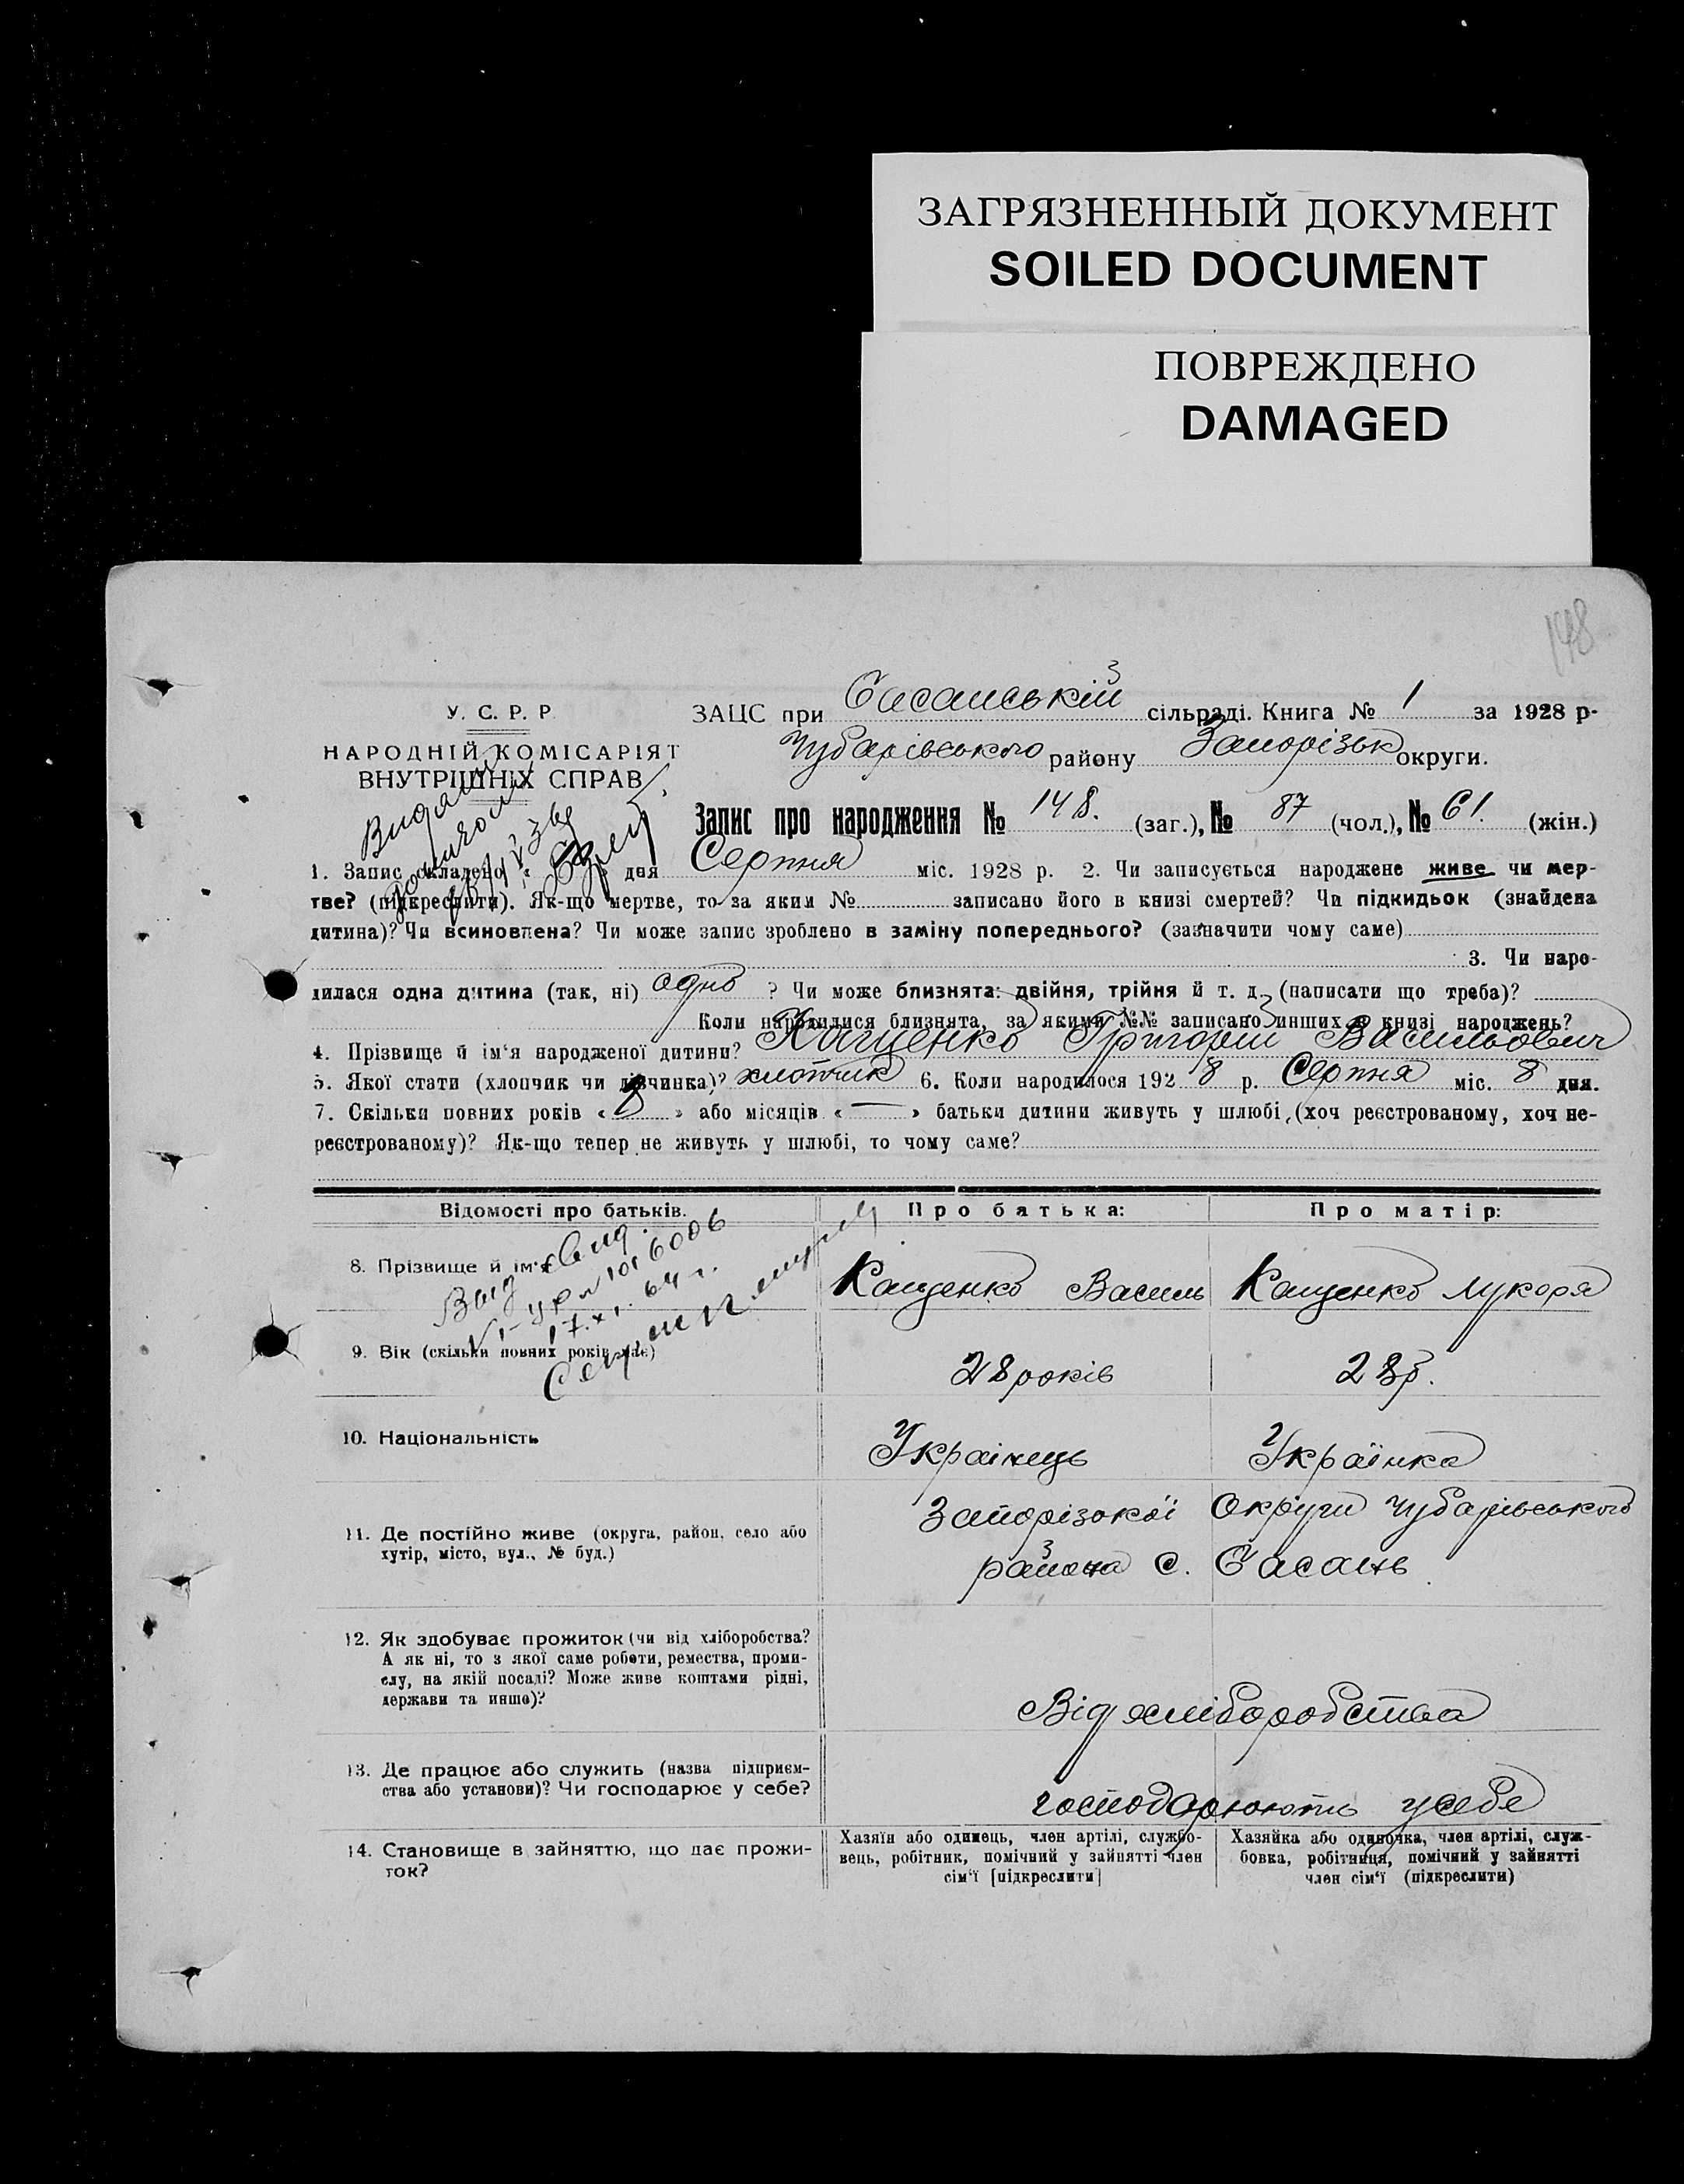 ЗАГРЯЗНЕННЫЙ ДОКУМЕНТ
SOILED DOCUMENT
ПОВРЕЖДЕНО
DAMAGED
148
У. С. Р. Р.
НАРОДНІЙ КОМІСАРІЯТ
ВНУТРІШНІХ СПРАВ
ЗАЦС при Басанській сільраді. Книга № 1 за 1928 р.
Чубарівського району Запорізьк округи.
Запис про народження № 148. (заг.), № 87 (чол.), № 61. (жін.)
1. Запис складено « » дня Серпня міс. 1928 р. 2. Чи записується народжене живе чи мер-
тве? (підкреслити). Як-що мертве, то за яким № записано його в книзі смертей? Чи підкидьок (знайдена
дитина)? Чи всиновлена? Чи може запис зроблено в заміну попереднього? (зазначити чому саме)
3. Чи наро-
дилася одна дитина (так, ні) одно ? Чи може близнята: двійня, трійня й т. д. (написати що треба)?
Коли народилися близнята, за якими №№ записано инших в книзі народжень?
4. Прізвище й ім'я народженої дитини? Кащенко Григорій Васильович
5. Якої стати (хлопчик чи дівчинка)? хлопчик 6. Коли народилося 1928 р. Серпня міс. 8 дня.
7. Скільки повних років « 8 » або місяців « — » батьки дитини живуть у шлюбі (хоч реєстрованому, хоч не-
реєстрованому)? Як-що тепер не живуть у шлюбі, то чому саме?
Відомості про батьків. Про батька: Про матір:
8. Прізвище й ім'я Кащенко Василь Кащенко Лукоря
Выд свид.
17.XI.64 г.
9. Вік (скільки повних років має) 28 років 28 р.
10. Національність Українець Українка
11. Де постійно живе (округа, район, село або
хутір, місто, вул., № буд.)
Запорізької Округи Чубарівського
района с. Басань
12. Як здобуває прожиток (чи від хліборобства?
А як ні, то з якої саме роботи, ремества, проми-
слу, на якій посаді? Може живе коштами рідні,
держави та инше)?
Від хліборобства
13. Де працює або служить (назва підприєм-
ства або установи)? Чи господарює у себе?
господарюють усебе
14. Становище в зайняттю, що дає прожи-
ток?
Хазяїн або одинець, член артілі, службо-
вець, робітник, помічний у зайнятті член
сім'ї [підкреслити]
Хазяйка або одиночка, член артілі, служ-
бовка, робітниця, помічний у зайнятті
член сім'ї (підкреслити)